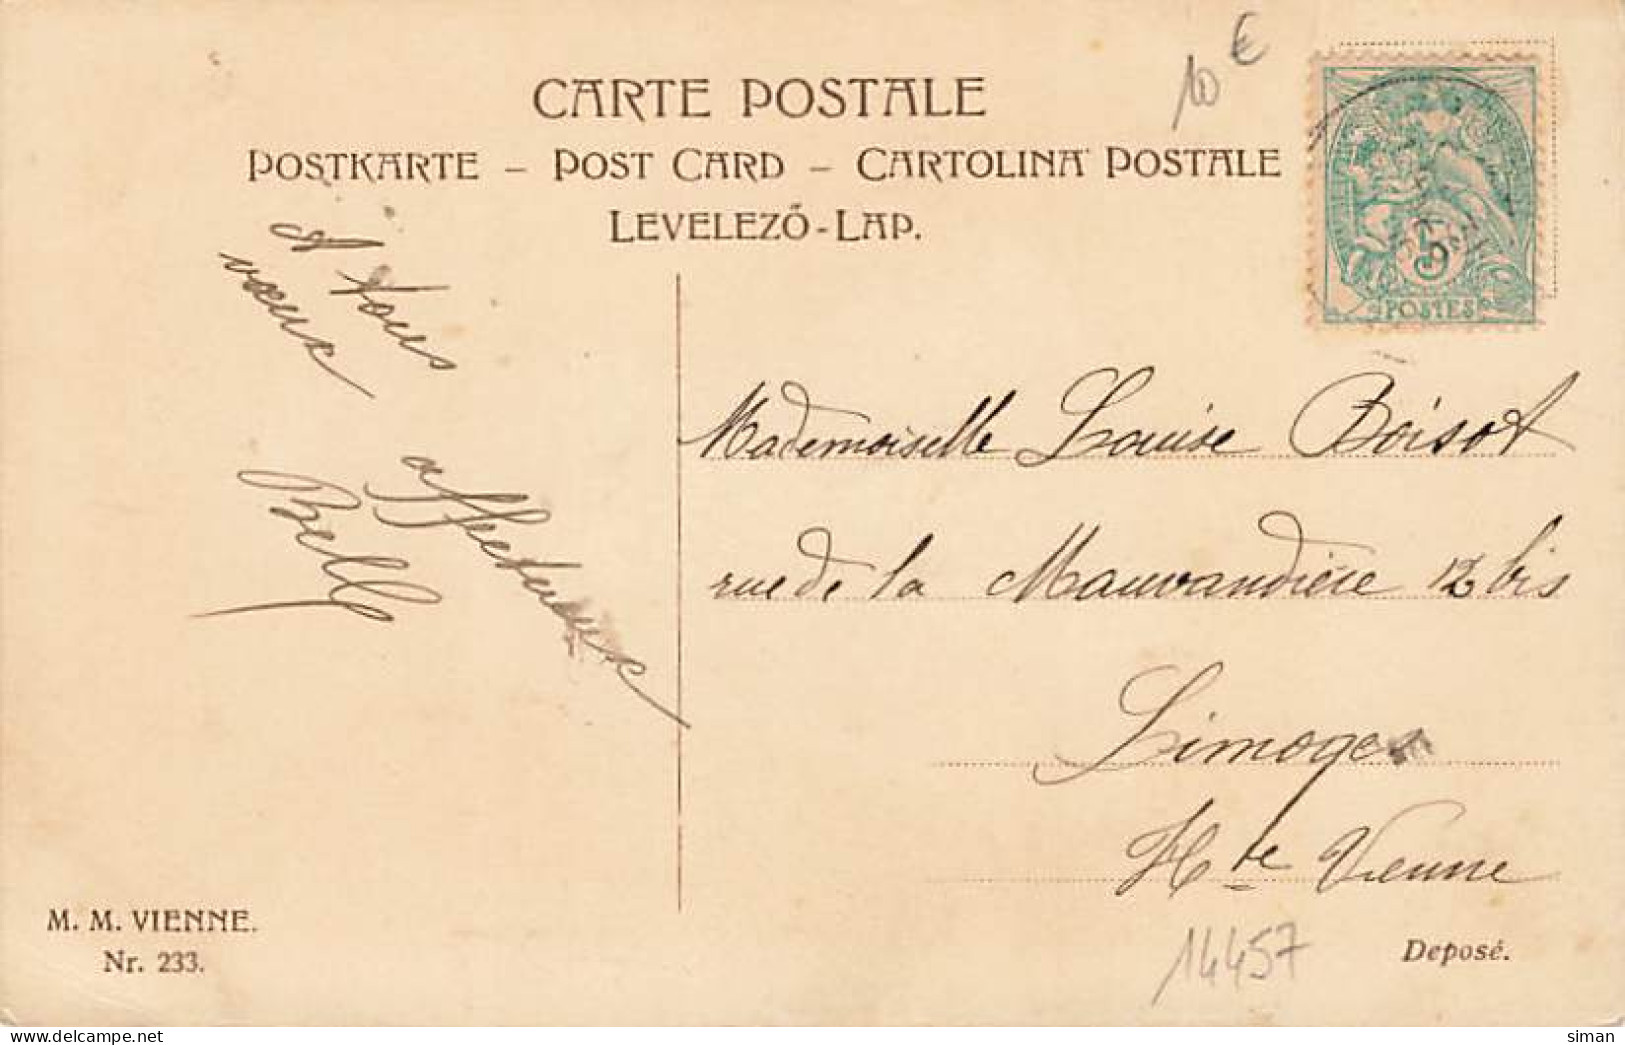 10 €
CARTE POSTALE
POSTKARTE – POST CARD – CARTOLINA POSTALE
LEVELEZŐ-LAP.
5
POSTES
A tous
vœux
affectueux
Bell
Mademoiselle Louise Boisot
rue de la Mauvandière 12 bis
Limoges
Hte Vienne
M. M. VIENNE.
Nr. 233.
14457
Deposé.
delcampe.net
siman